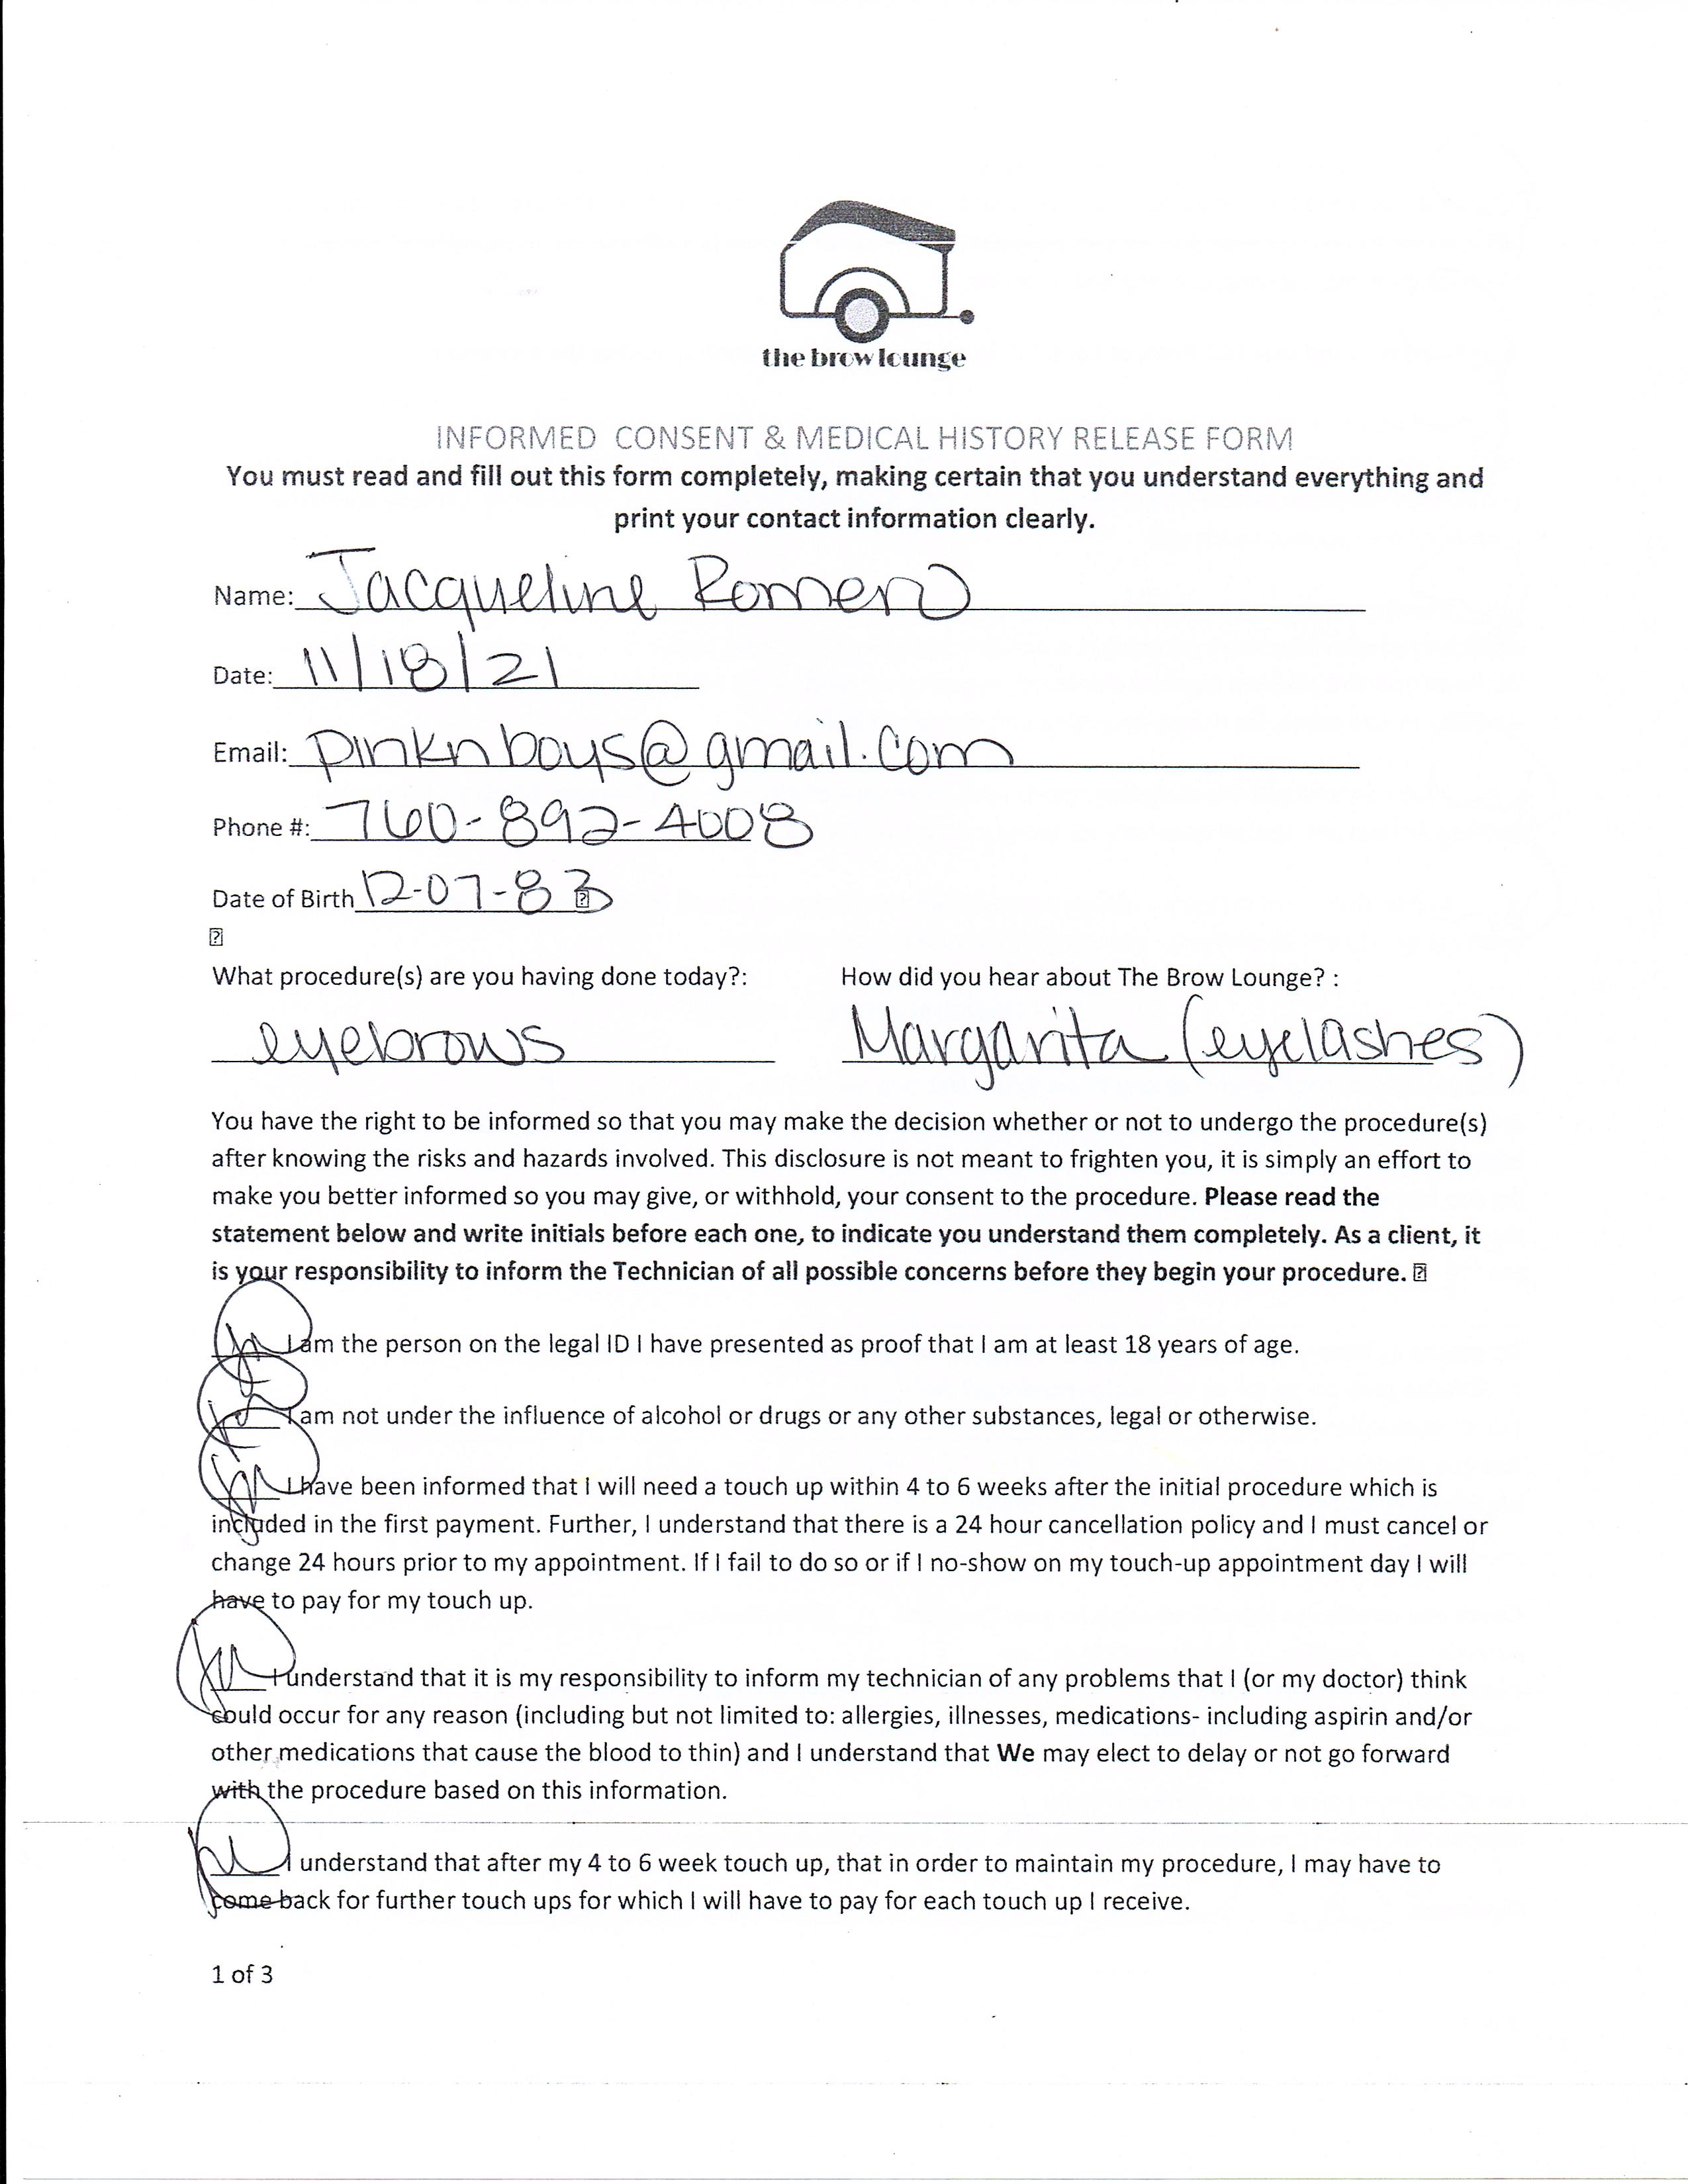 the brow lounge
INFORMED CONSENT & MEDICAL HISTORY RELEASE FORM
You must read and fill out this form completely, making certain that you understand everything and
print your contact information clearly.
Name: Jacqueline Romero
Date: 11/18/21
Email: pinknboys@gmail.com
Phone #: 760-892-4008
Date of Birth 12-07-83
What procedure(s) are you having done today?: How did you hear about The Brow Lounge? :
eyebrows Margarita (eyelashes)
You have the right to be informed so that you may make the decision whether or not to undergo the procedure(s)
after knowing the risks and hazards involved. This disclosure is not meant to frighten you, it is simply an effort to
make you better informed so you may give, or withhold, your consent to the procedure. Please read the
statement below and write initials before each one, to indicate you understand them completely. As a client, it
is your responsibility to inform the Technician of all possible concerns before they begin your procedure.
I am the person on the legal ID I have presented as proof that I am at least 18 years of age.
I am not under the influence of alcohol or drugs or any other substances, legal or otherwise.
I have been informed that I will need a touch up within 4 to 6 weeks after the initial procedure which is
included in the first payment. Further, I understand that there is a 24 hour cancellation policy and I must cancel or
change 24 hours prior to my appointment. If I fail to do so or if I no-show on my touch-up appointment day I will
have to pay for my touch up.
I understand that it is my responsibility to inform my technician of any problems that I (or my doctor) think
could occur for any reason (including but not limited to: allergies, illnesses, medications- including aspirin and/or
other medications that cause the blood to thin) and I understand that We may elect to delay or not go forward
with the procedure based on this information.
I understand that after my 4 to 6 week touch up, that in order to maintain my procedure, I may have to
come back for further touch ups for which I will have to pay for each touch up I receive.
1 of 3